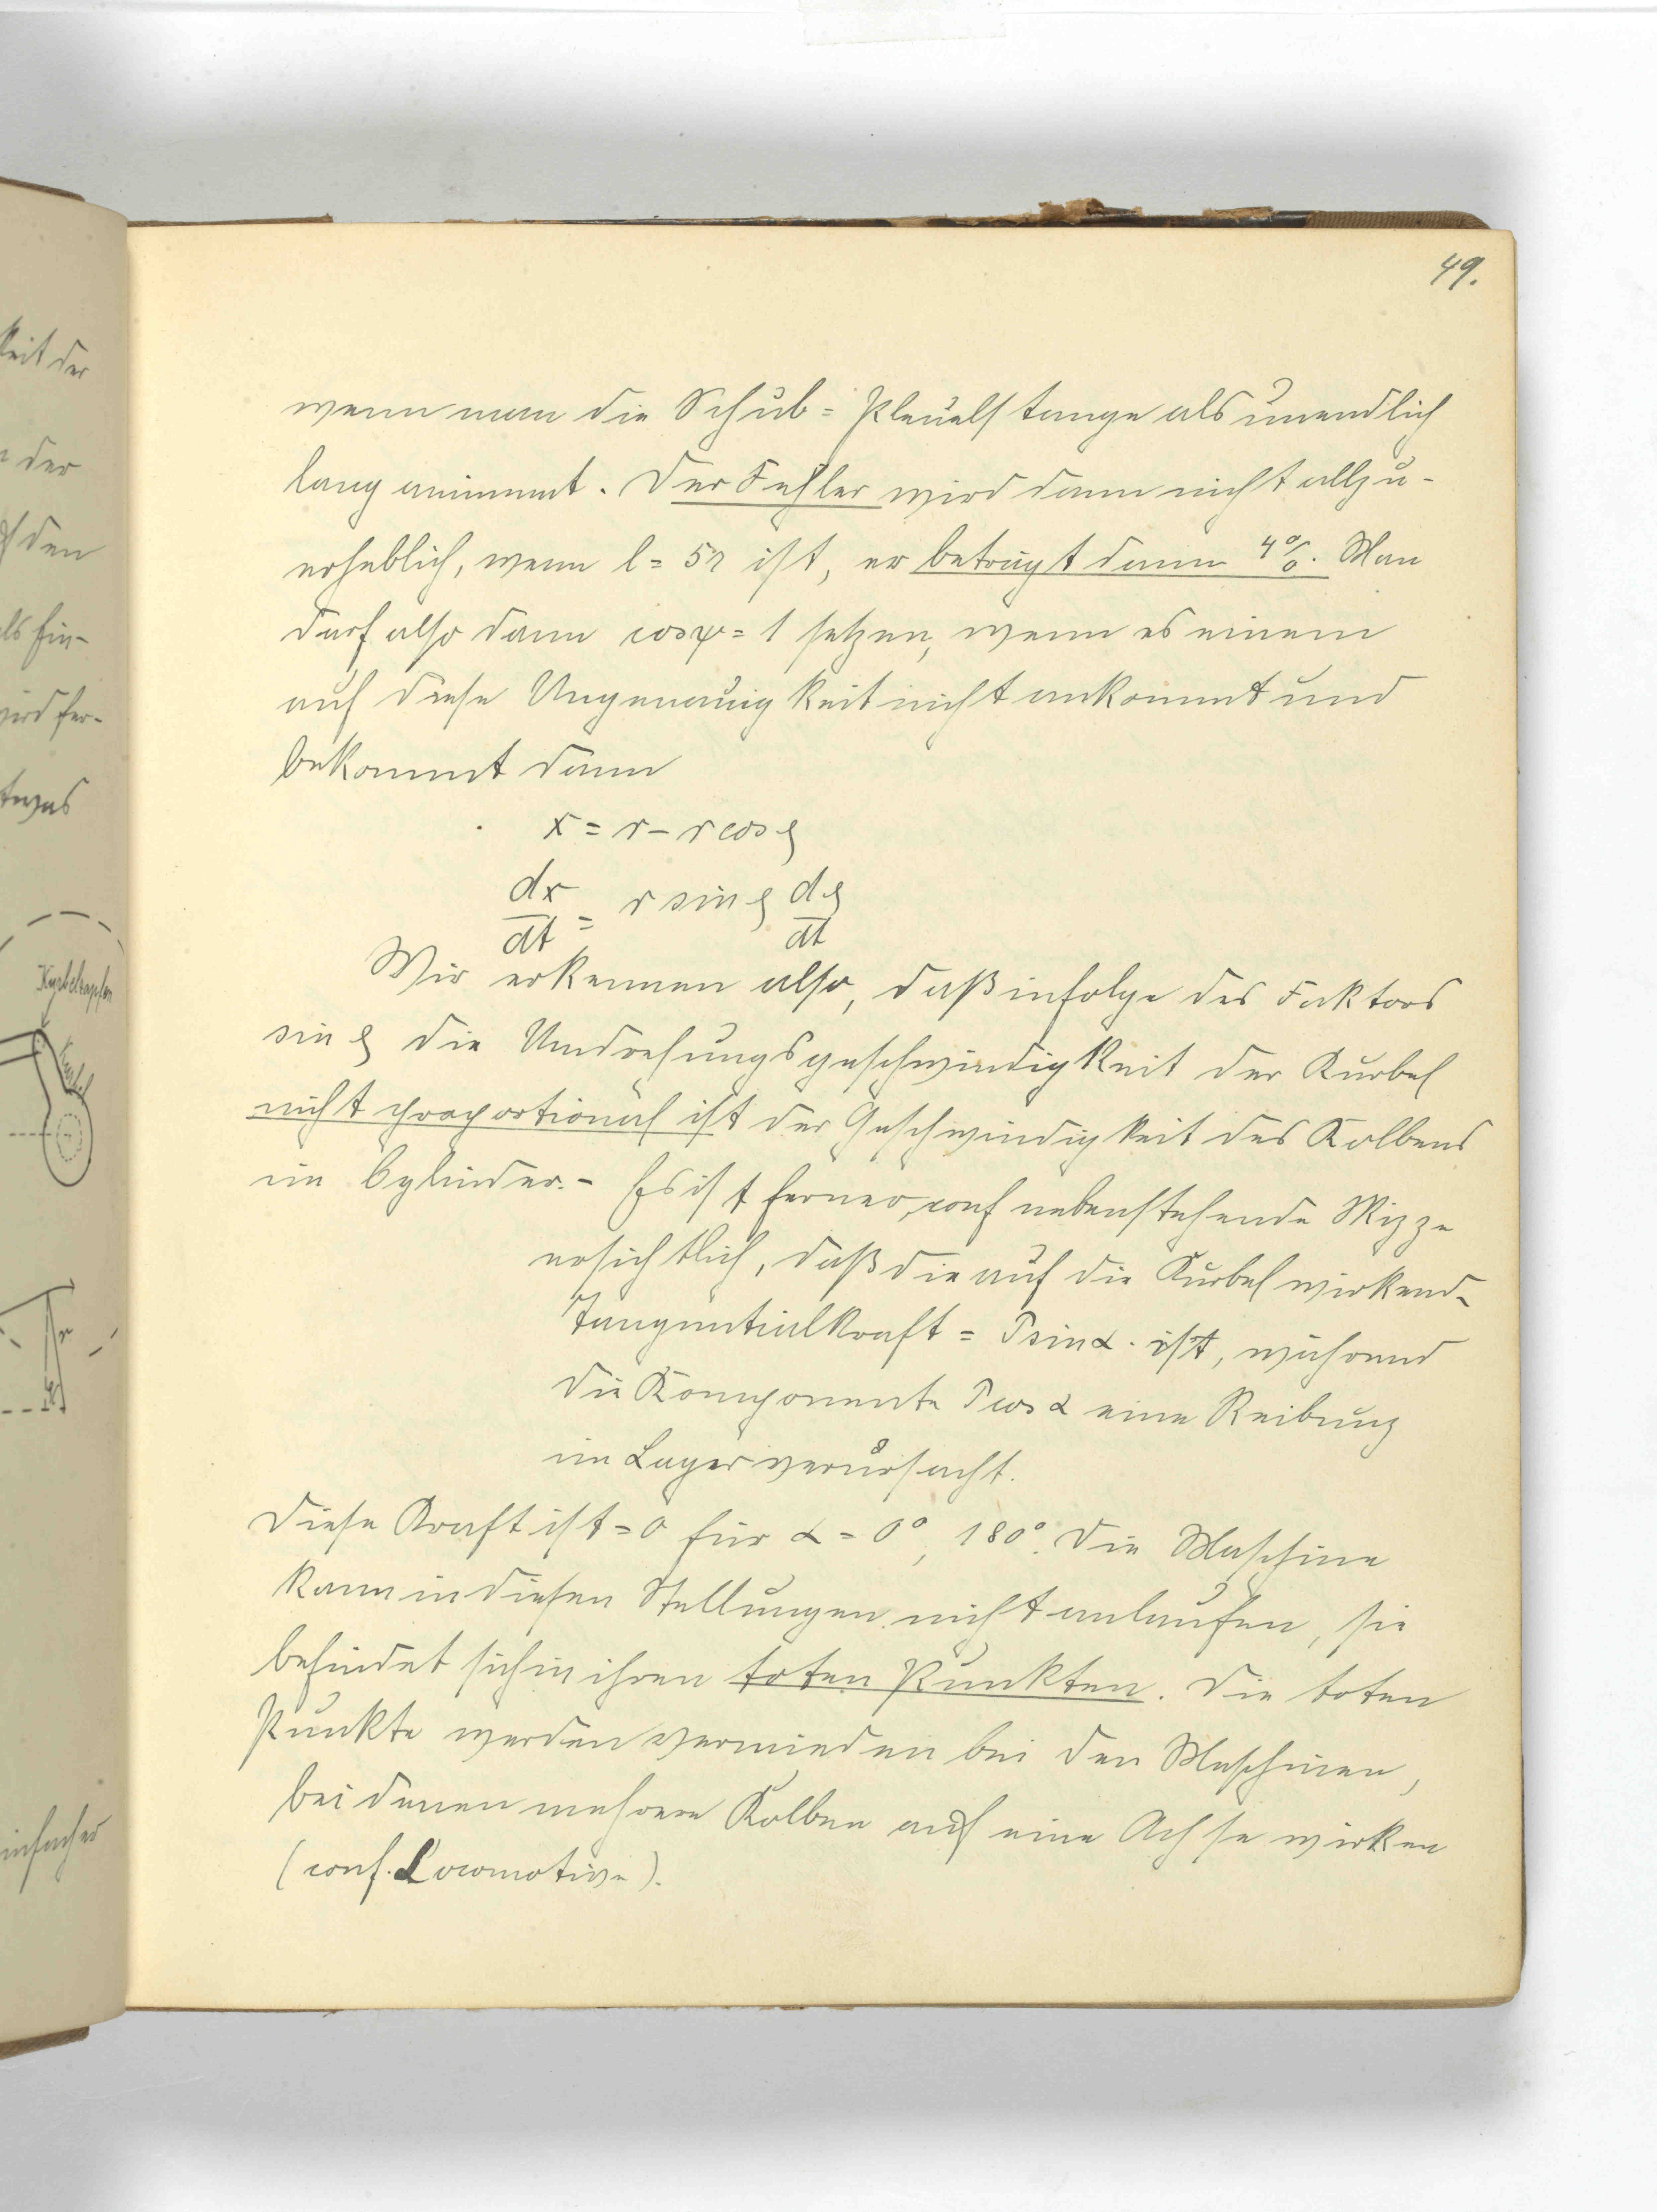 49.
wenn man die Schub= Pleuelstange als unendlich
lang annimmt. Der Fehler wird dann nicht allzu-
erheblich, wenn l = 5r ist, er beträgt dann 4%. Man
darf also dann cos ψ = 1 setzen, wenn es einem
auf diese Ungenauigkeit nicht ankommt und
bekommt dann
x = r – r cos φ
dx/dt = r sin φ dφ/dt
Wir erkennen also, daß infolge des Faktors
sin φ die Umdrehungsgeschwindigkeit der Kurbel
nicht proportional ist der Geschwindigkeit des Kolbens
im Cylinder. – Es ist ferner, conf nebenstehende Skizze
ersichtlich, daß die auf die Kurbel wirkend-
Tangentialkraft = P sin α. ist, während
die Komponente P cos α eine Reibung
im Lager verursacht.
Diese Kraft ist = 0 für α = 0°, 180°. Die Maschine
kann in diesen Stellungen nicht anlaufen, sie
befindet sich in ihren toten Punkten. Die toten
Punkte werden vermieden bei den Maschinen,
bei denen mehrere Kolben auf eine Achse wirken
(conf. Locomotive).
keit der
der
den
als
wird fer-
etwas
Kurbelzapfen
Kurbel
r
einfacher